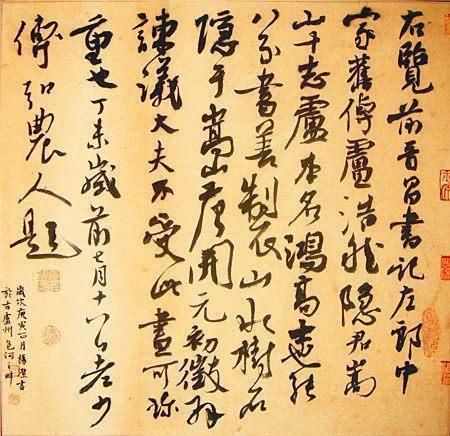 右覽前晉昌書記左郎中
家舊傳盧浩然隱居嵩
山十志盧本名鴻高士也能
八分書善製山水樹石
隱于嵩山唐開元初徵拜
諫議大夫不受此畫可珍
重也丁未歲前七月十八日老少
傅弘農人題
歲次庚寅正月楊書
於古廬州包河之畔